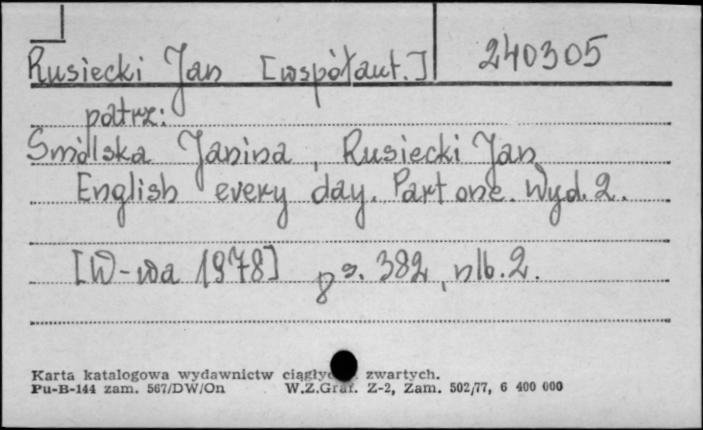 Rusiecki Jan [współaut.] 240305
patrz:
Smólska Janina, Rusiecki Jan
English every day. Part one. Wyd. 2.
[W-wa 1978] 8° s. 382, nlb. 2.
Karta katalogowa wydawnictw zwartych.
Pu-B-144 zam. 567/DW/On W.Z.Graf. Z-2, Zam. 502/77, 6 400 000